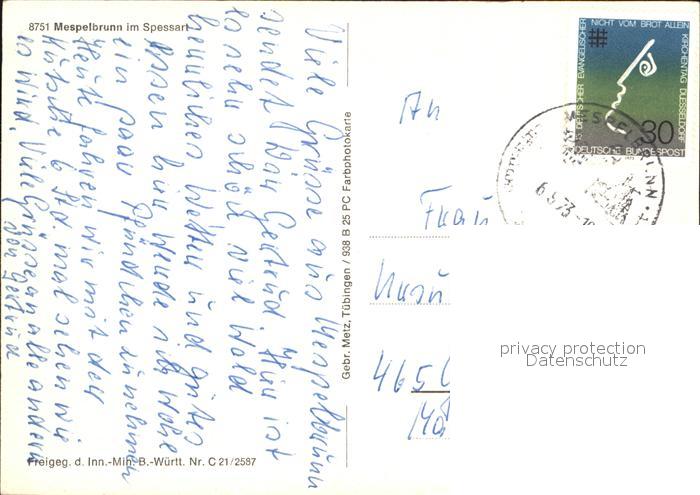 8751 Mespelbrunn im Spessart
Viele Grüsse aus Mespelbrunn
sendet Gertrud. Hier ist
es sehr schön viel Wald
herrliches Wetter und gutes
Essen hier werde ich wohl
ein paar Pfündchen zunehmen
Heute fahren wir mit der
6 Std. mal sehen wie
es wird. Viele Grüsse an alle anderen
von Gertrud
Gebr. Metz, Tübingen / 938 B 25 PC Farbphotokarte
Freigeg. d. Inn.-Min. B.-Württ. Nr. C 21/2587
NICHT VOM BROT ALLEIN
15. DEUTSCHER EVANGELISCHER KIRCHENTAG DUESSELDORF
30
DEUTSCHE BUNDESPOST
MESPELBRUNN
6.9.73
An
Frau
465
privacy protection
Datenschutz